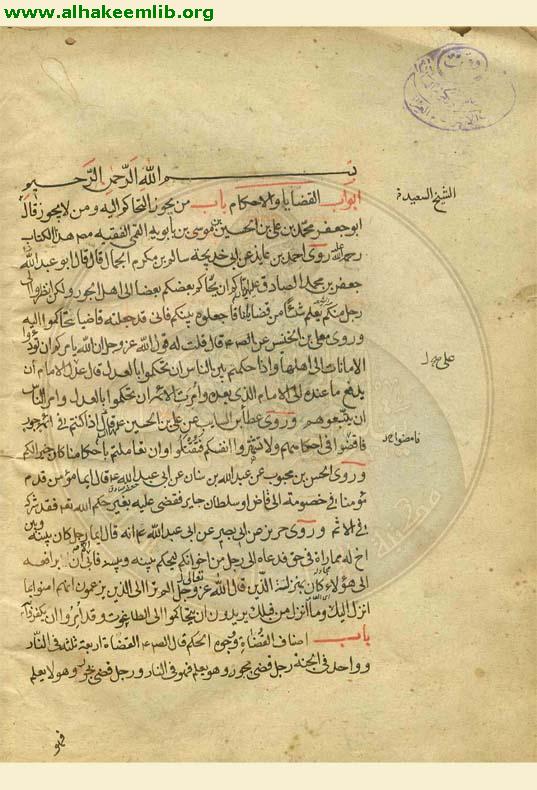 www.alhakeemlib.org
بسم الله الرحمن الرحيم
ابواب القضايا والاحكام باب من يجوز التحاكم اليه ومن لا يجوز قال
الشيخ السعيد
ابو جعفر محمد بن علي بن الحسين بن موسى بن بابويه القمي الفقيه مصنف هذا الكتاب
رحمه الله روى احمد بن عايذ عن ابي خديجة سالم بن مكرم الجمال قال قال ابو عبد الله
جعفر بن محمد الصادق اياكم ان يحاكم بعضكم بعضا الى اهل الجور ولكن انظروا الى
رجل منكم يعلم شيئا من قضايانا فاجعلوه بينكم فاني قد جعلته قاضيا فتحاكموا اليه
وروى معلى بن الخنيس عن الصادق قال قلت له قول الله عز وجل ان الله يامركم ان تؤدوا
الامانات الى اهلها واذا حكمتم بين الناس ان تحكموا بالعدل قال عدل الامام ان
يدفع ما عنده الى الامام الذي بعده وامرت الائمة ان يحكموا بالعدل وامر الناس
ان يتبعوهم وروى عطا بن السايب عن علي بن الحسين قال اذا كنتم في ائمة جور
فاقضوا في احكامهم ولا تشهروا انفسكم فتقتلوا وان تعاملتم باحكامنا كان خيرا لكم
فامضوا
وروى الحسن بن محبوب عن عبد الله بن سنان عن ابي عبد الله قال ايما مؤمن قدم
مؤمنا في خصومة الى قاض او سلطان جاير فقضى عليه بغير حكم الله فقد شركه
في الاثم وروى حريز عن ابي بصير عن ابي عبد الله انه قال ايما رجل كان بينه وبين
اخ له مماراة في حق فدعاه الى رجل من اخوانكم ليحكم بينه وبينه فابى الا ان يرافعه
الى هؤلاء كان بمنزلة الذين قال الله عز وجل الم تر الى الذين يزعمون انهم امنوا بما
انزل اليك وما انزل من قبلك يريدون ان يتحاكموا الى الطاغوت وقد امروا ان يكفروا به
باب اصناف القضاة ووجوه الحكم قال الصادق القضاة اربعة ثلثة في النار
وواحد في الجنة رجل قضى بجور وهو يعلم فهو في النار ورجل قضى بجور وهو لا يعلم
فهو